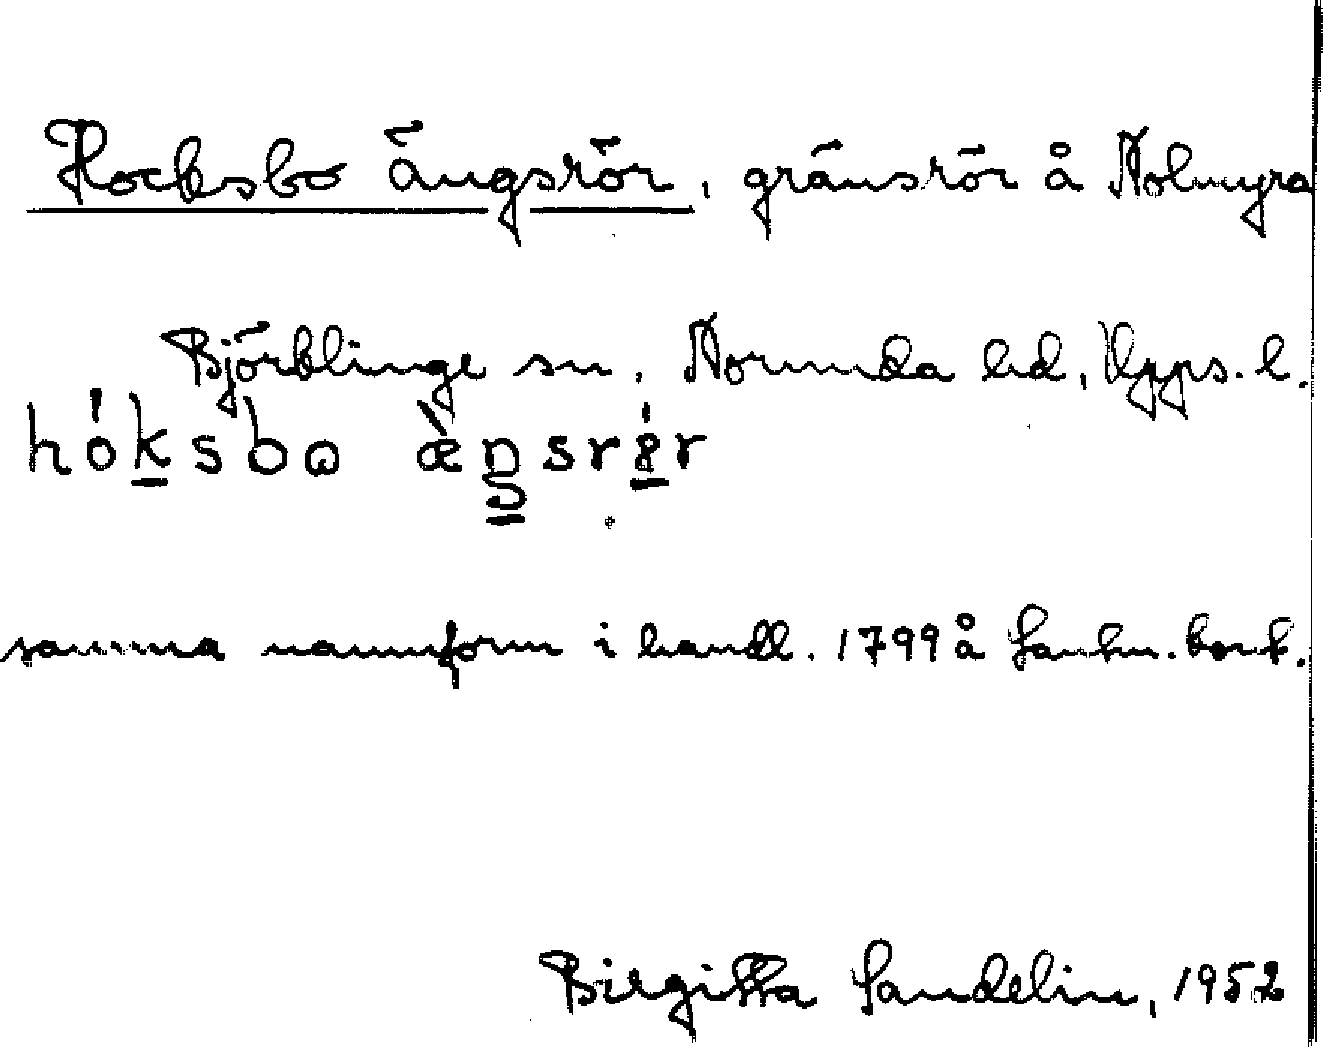 Hocksbo Ängsrör, gränsrör å Nolmyra
Björklinge sn, Norunda hd, Upps. l.
hóksbo æ̀ŋsrǿr
samma namnform i handl. 1799 å Lantm. kont.
Birgitta Sandelin, 1952